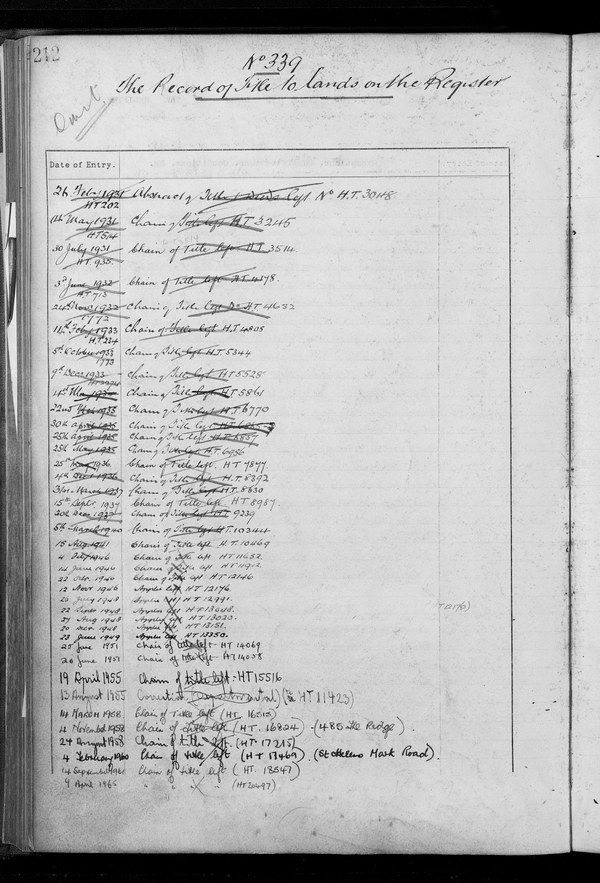 212
No 339
The Record of Title to lands on the Register
Omit
Date of Entry.
26 Feb 1931 Abstract of Title & Deeds left No H.T. 3048
HT 202
May 1931 Chain of Title left H.T 3245
HT 514
30 July 1931 Chain of Title left H.T. 3514
HT 935
3rd June 1932 Chain of Title left HT 4178.
HT 713
24th Nov 1932 Chain of Title left No HT 4632
1772
14th Feb 1933 Chain of Title left H.T. 4805
H.T. 224
5th October 1933 Chain of Title left H.T. 5344
1793
9th Decr 1933 Chain of Title left HT 5528
14th May Chain of Title left HT 5861
22nd Feb 1935 Chain of Title left H.T. 6770
30th April 1935 Chain of Title left H.T.
25th April 1935 Chain of Title left H.T. 6889
25th May 1935 Chain of Title left H.T. 6956
25th May 1936 Chain of Title left. HT 7877.
4th Decr 1936 Chain of Title left H.T. 8392
31st March 1937 Chain of Title left H.T. 8830
15th Septr 1937 Chain of Title left. HT 8987.
20th Decr 1937 Chain of Title left H.T. 9239
8th March 1940 Chain of Title left H.T. 10344
15 Aug. 1941 Chain of Title left H.T. 10469
4 July 1946 Chain of title left HT 11652.
14 June 1946 Chain of title left HT 11912
22 Oct. 1946 Chain of title left HT 12146
12 Novr 1946 Applcn left HT 12176.
26 July 1948 Applcn left HT 12991.
22 Septr 1948 Applcn left HT 13048.
27 Aug 1948 Applcn left HT 13020.
20 Decr 1948 Applcn left HT 13151.
(12176)
23 June 1949 Applcn left HT 13350.
25 June 1951 Chain of title left - HT 14069
20 June 1951 Chain of title left - HT 14058
19 April 1955 Chain of title left - HT 15516
13 August 1955 Correction (Departmental) (in HT 11423)
14 March 1958 Chain of title left (HT. 16515)
4 November 1958 Chain of title left (HT. 16824) (485 The Ridge).
24 August 1958 Chain of title left. (HT 17215)
4 February 1960 Chain of title left (HT 17469). (St Helens Mark Road).
14 September 1961 Chain of title left (HT. 18547)
9 April 1965 " " " " (HT 20497).